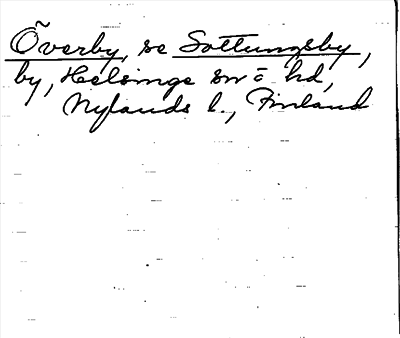 Överby, se Sottungsby,
by, Helsinge sn o hd,
Nylands l., Finland